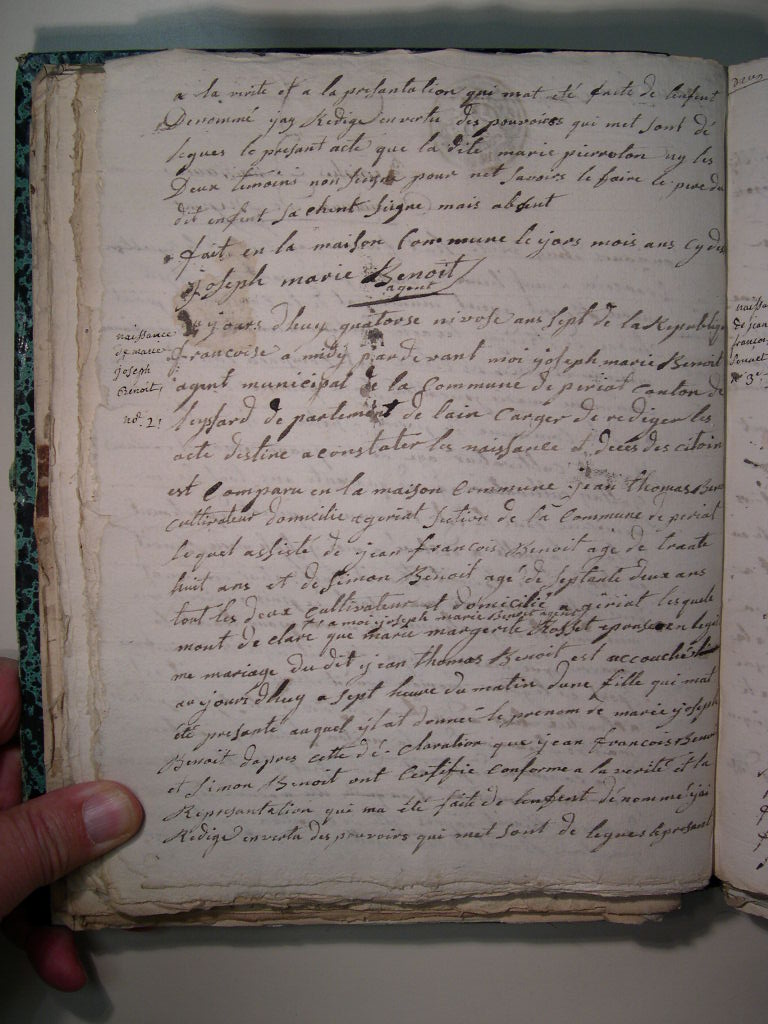 a la verite et a la presantation qui mat eté faite de lenfent
Denommé jay Redige en vertu des pouvoirs qui met sont dé
legues le presant acte que la dite marie pierroton ny les
Deux temoins non signe pour net savoirs le faire le pere du
dit enfent sachent signe mais absent
fait en la maison Commune le jors mois ans cy des
joseph marie Benoit
agent
naissance
de marie
joseph
Benoit
no. 2.
aujours dhuy quatorse nivose ans sept de la Republique
francoise a midy pardevant moi joseph marie Benoit
agent municipal de la Commune de periat Canton de
de partement de lain Carger de rediger les
acte destine a constater les naissance et deces des citoin
est Comparu en la maison Commune jean thomas Ben
Cultivateur domicilie a geriat section de la Commune de periat
lequel assisté de jean francois Benoit age de trante
huit ans et de simon Benoit agé de septante deux ans
tout les deux cultivateur et domicilié a geriat lesquele
a moi joseph marie Benoit agent
mont de claré que marie margerite Rosset epouse en legit
me mariage du dit jean thomas Benoit est accouché
aujours dhuy a sept heure du matin dune fille qui mat
été presante auquel yl at donné le prenom de marie joseph
Benoit dapres cette dé claration que jean francois Benoit
et simon Benoit ont Certifie Conforme a la verité et la
Representation qui ma été faite de lenfent dénommé jai
Redige en vertu des pouvoirs qui met sont de legues le presant
naissa
de jean
francois
n° 3